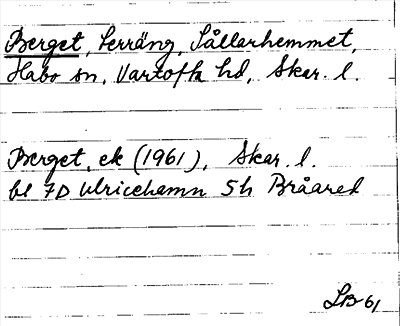 Berget, Perräng, Sållarhemmet,
Habo sn, Vartofta hd, Skar. l.
Berget, ek (1961), Skar. l.
bl 7D Ulricehamn 5h Bråared
LB 61